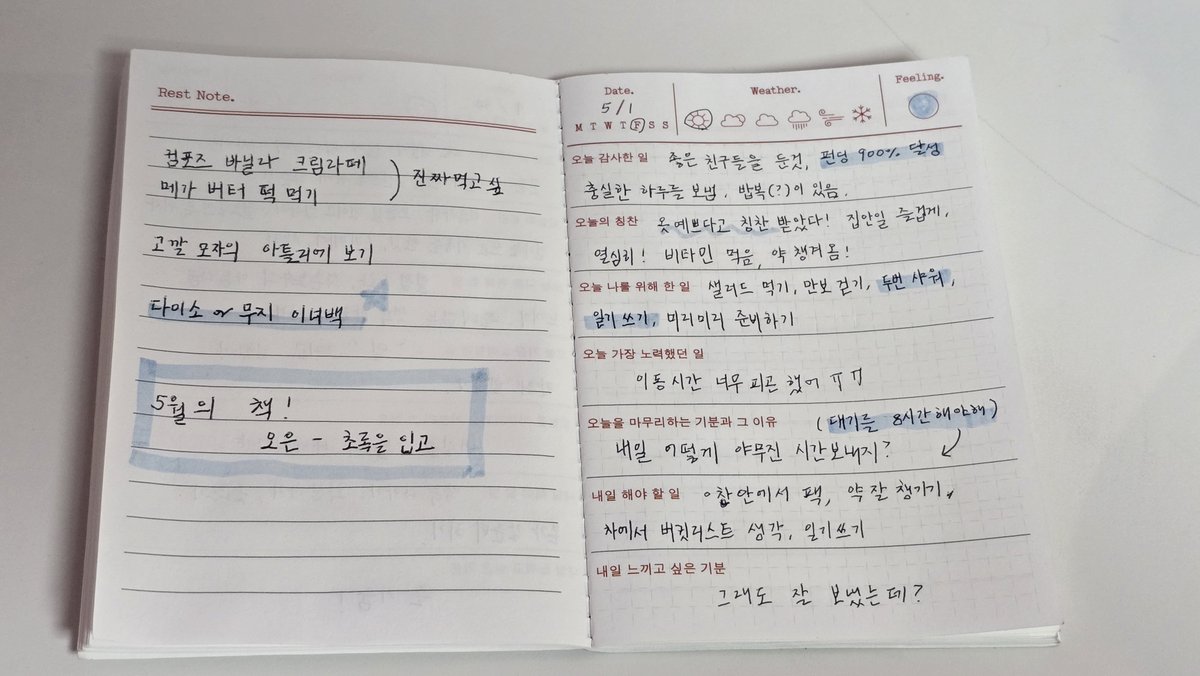 Rest Note.
컴포즈 바닐라 크림라떼
메가 버터 떡 먹기
진짜먹고싶
고깔 모자의 아틀리에 보기
다이소 or 무지 이너백
5월의 책!
오은 - 초록을 입고
Date.
5/1
M T W T F S S
Weather.
Feeling.
오늘 감사한 일 좋은 친구들을 둔것, 펀딩 900% 달성
충실한 하루들 보냄, 밥복(?)이 있음.
오늘의 칭찬 옷예쁘다고 칭찬 받았다! 집안일 즐겁게,
열심히! 비타민 먹음, 약 챙겨옴!
오늘 나를 위해 한 일 샐러드 먹기, 만보 걷기, 두번 샤워,
일기 쓰기, 미리미리 준비하기
오늘 가장 노력했던 일
이동시간 너무 피곤 했어 ㅠㅠ
오늘을 마무리하는 기분과 그 이유 (대기를 8시간해야해)
내일 어떻게 야무진 시간보내지?
내일 해야 할 일 안에서 팩, 약잘 챙기기,
차에서 버킷리스트 생각, 일기쓰기
내일 느끼고 싶은 기분
그래도 잘 보냈는데?